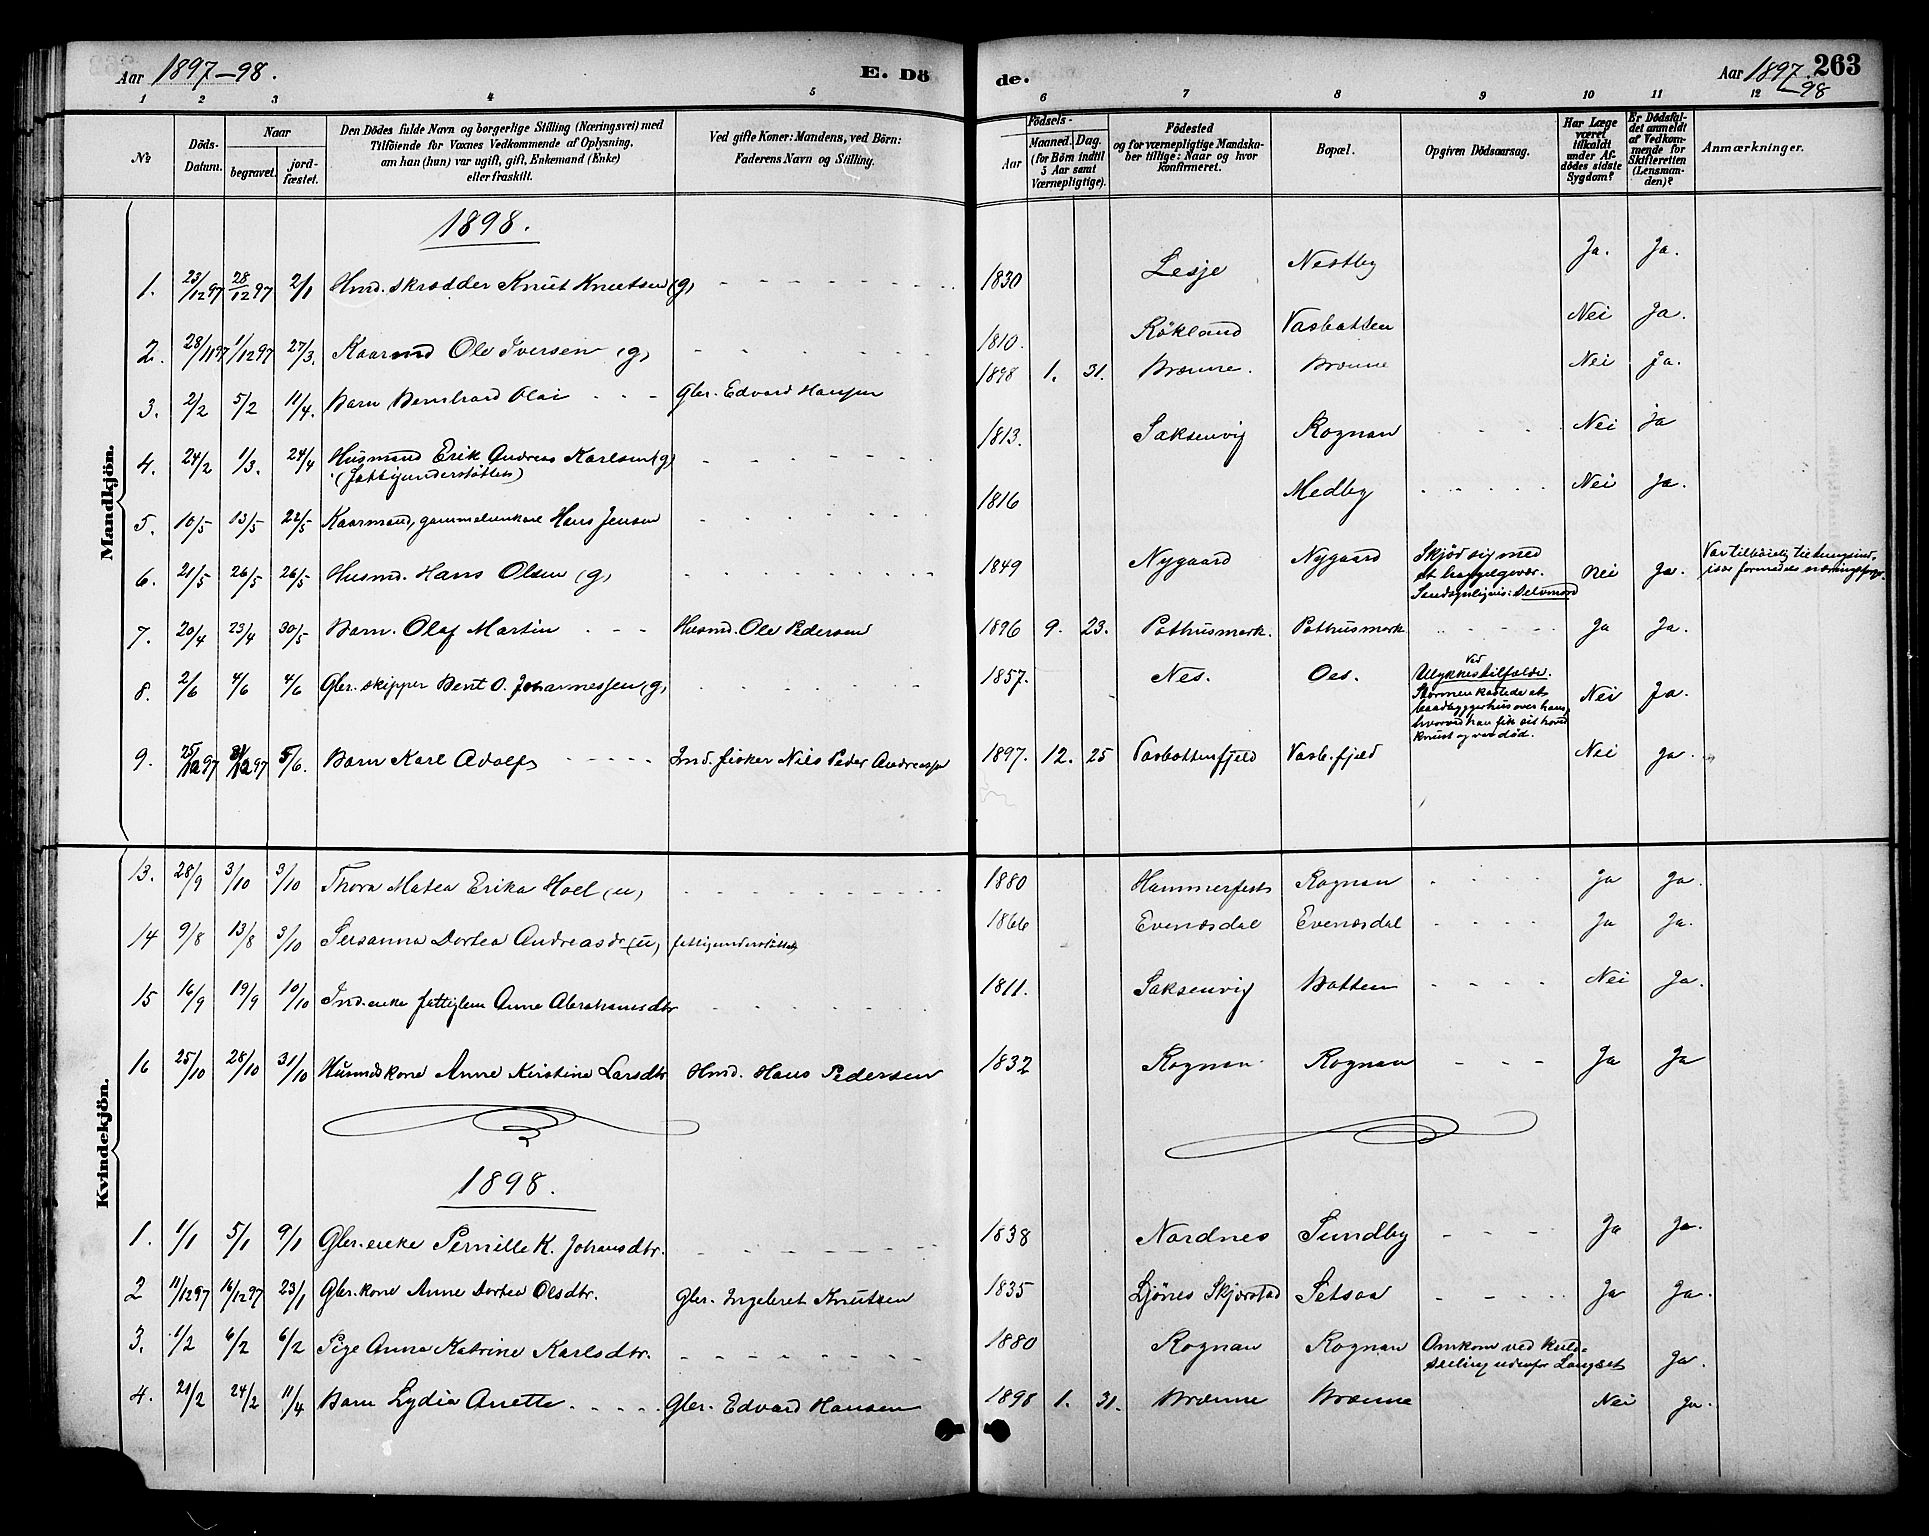 Aar 1897-98.
E. Dö
de.
Aar 1897-98
263
1 2 3 4 5 6 7 8 9 10 11 12
№
Döds-Datum.
Naar
begravet.
jord-fæstet.
Den Dödes fulde Navn og borgerlige Stilling (Næringsvei) med
Tilföiende för Voxnes Vedkommende af Oplysning,
om han (hun) var ugift, gift, Enkemand (Enke)
eller fraskilt.
Ved gifte Koner: Mandens, ved Börn:
Faderens Navn og Stilling.
Födsels-
Aar
Maaned. Dag.
(for Börn indtil
5 Aar samt
Værnepligtige).
Födested
og for værnepligtige Mandska-
ber tillige: Naar og hvor
konfirmeret.
Bopæl.
Opgiven Dödsaarsag.
Har Læge
været
tilkaldt
under Af-
dödes sidste
Sygdom?
Er Dödsfal-
det anmeldt
af Vedkom-
mende for
Skifteretten
(Lensman-
den)?
Anmærkninger.
Mandkjön.
1898.
1. 23/12 97 28/12 97 2/1 Hmd. skrædder Knut Knutsen (g) 1830 Lesje Nestby Ja. Ja.
2. 28/11 97 1/12 97 27/3. Kaarmd Ole Iversen (g) 1810. Rökland Vasbotten Nei Ja.
3. 2/2 5/2 11/4. Barn Bernhard Olai Gbr. Edvard Hansen 1898 1. 31. Brænne. Brænne Nei ja.
4. 24/2 1/3. 24/4 Husmand Erik Andreas Karlsen (g)
(Fattigunderstöttet) 1813. Saksenvig Rognan Nei ja
5. 10/5 13/5 22/5 Kaarmand, gammelunkar Hans Jensen 1816 Medby Nei Ja.
6. 21/5 26/5 26/5 Husmd. Hans Olsen (g) 1849 Nygaard Nygaard Skjöd sig med
et haggelgevær.
Sandsynligvis: Selvmord Nei Ja. Var tilböielig til tungsind,
især formedels næringssorger.
7. 20/4 23/4 30/5 Barn. Olaf Martin Husmd. Ole Pedersen 1896 9. 23. Pothusmark. Pothusmark Ja Ja.
8. 2/6 4/6 4/6 Gbr. skipper Bent O. Johannessen (g) 1857. Nes. Oes. Ved
Ulykkestilfælde.
Stormen kastede et
baadbyggerhus over ham,
hvorved han fik sit hoved
knust og var död. Nei Ja.
9. 25/12 97 31/12 97 5/6. Barn Karl Adolf Ind. fisker Nils Peder Andreassen 1897. 12. 25 Vasbottenfjeld Vasb.fjeld Nei ja.
Kvindekjön.
13. 28/9 3/10 3/10 Thora Matea Erika Hoel (u) 1880 Hammerfest Rognan Ja Ja.
14 9/8 13/8 3/10 Susanna Dortea Andreasdr (u) fattigunderstöttet 1866 Evenesdal Evenesdal Ja Ja.
15 16/9 19/9 10/10 Ind. enke fattiglem Anne Abrahamsdtr 1811. Saksenvig Botten Nei Ja.
16 25/10 28/10 31/10 Husmdskone Anne Kirstine Larsdtr Hmd. Hans Pedersen 1832 Rognan Rognan Ja Ja
1898.
1. 1/1 5/1 9/1 Gbr. enke Pernille K. Johansdtr. 1838 Nordnes Sundby Ja Ja.
2 11/12 97 16/12 97 23/1 Gbr. kone Anne Dortea Olsdtr. Gbr. Ingebret Knutsen 1835 Ljönes Skjerstad Setsaa Ja Ja.
3. 1/2 6/2 6/2 Pige Anna Katrine Karlsdtr. 1880 Rognan Rognan Omkom ved kuld-
seiling udenfor Langset Ja.
4. 21/2 24/2 11/4 Barn Lydia Anette Gbr. Edvard Hansen 1898 1. 31. Brænne Brænne Nei Ja.